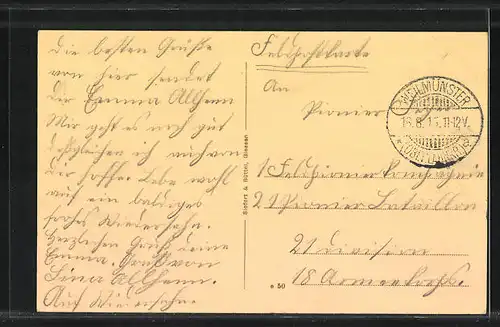 Die besten Grüße
von hier sendet
dir Emma Allhenn
Mir geht es noch gut
desgleichen ich auch von
dir hoffe. Lebe wohl
auf ein baldiges
frohes Wiedersehn.
Herzlichen Gruß deine
Emma. Gruß von
Lina Allhenn.
Auf Wiedersehn.
Siefert & Büttel, Giessen
Feldpostkarte
An
Pionier
WEILMÜNSTER
18.8.15.11-12V.
1 Feldpionierkompagnie
21 Pionier Bataillon
21 Division
18 Armeekorps.
* 50